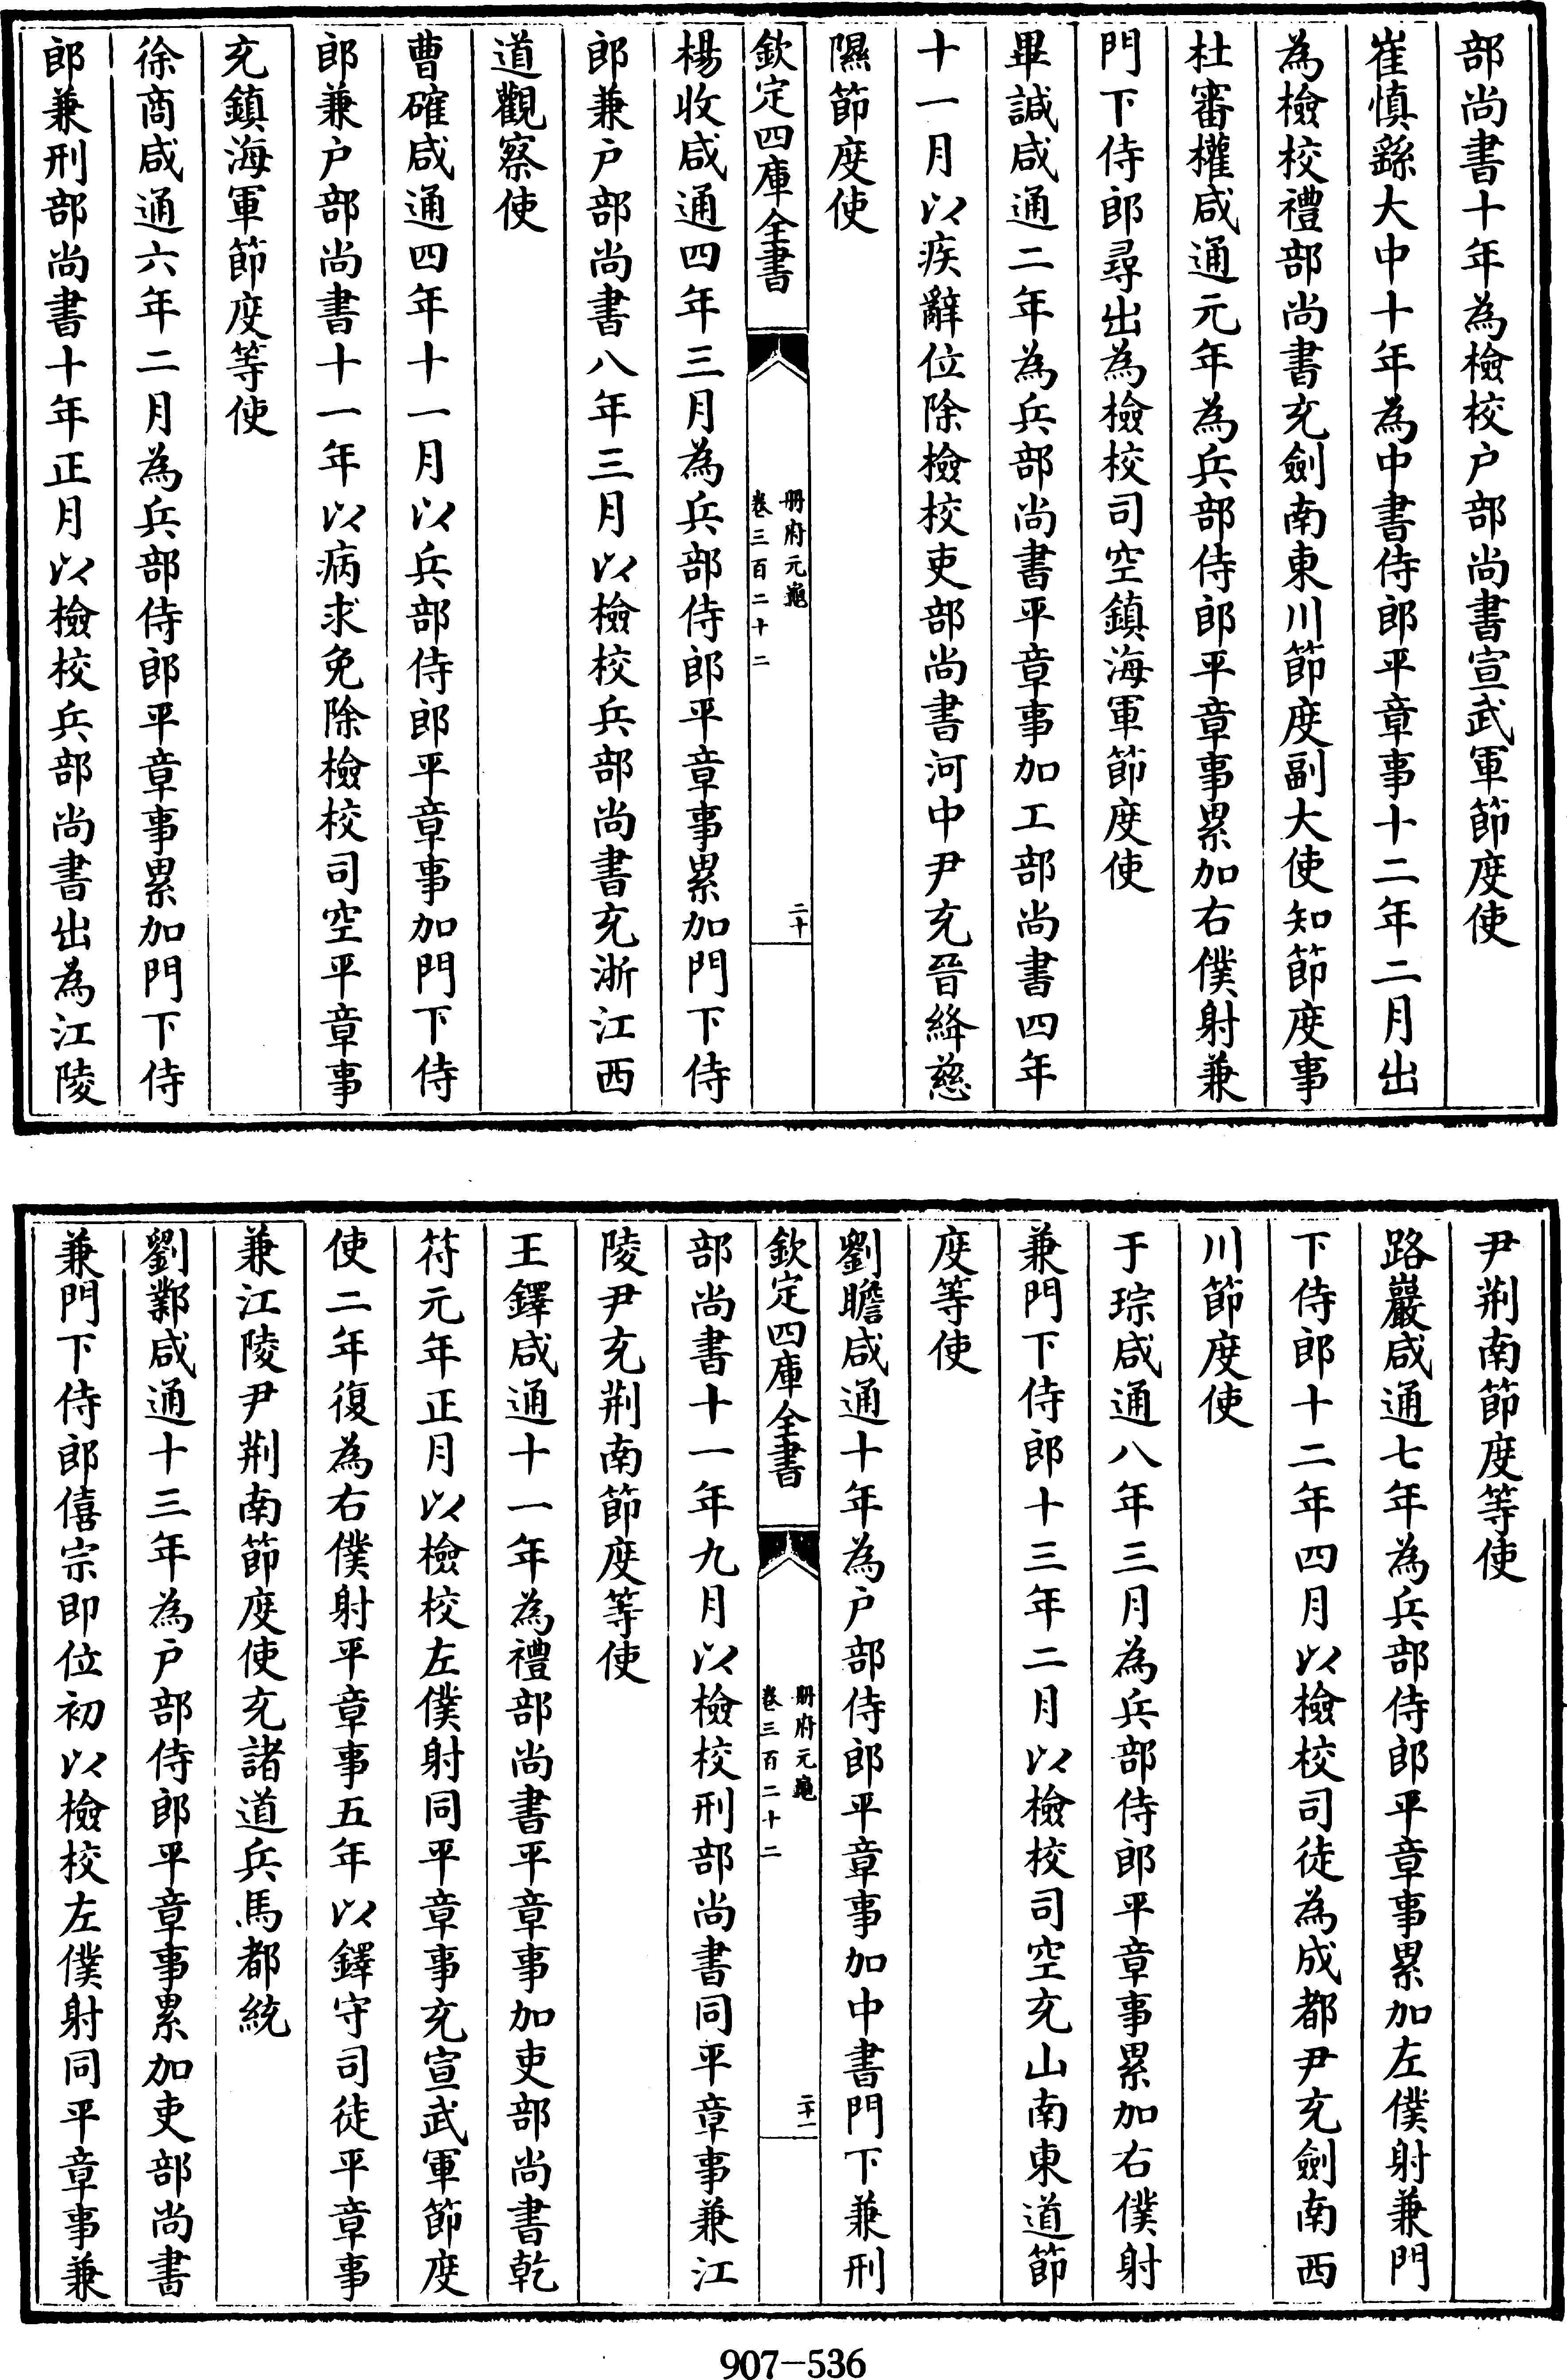 部尚書十年為檢校户部尚書宣武軍節度使
崔慎繇大中十年為中書侍郎平章事十二年二月出
為檢校禮部尚書充劍南東川節度副大使知節度事
杜審權咸通元年為兵部侍郎平章事累加右僕射兼
門下侍郎尋出為檢校司空鎮海軍節度使
畢諴咸通二年為兵部尚書平章事加工部尚書四年
十一月以疾辭位除檢校吏部尚書河中尹充晉絳慈
隰節度使
欽定四庫全書
册府元龜
卷三百二十二
二十
楊收咸通四年三月為兵部侍郎平章事累加門下侍
郎兼户部尚書八年三月以檢校兵部尚書充浙江西
道觀察使
曹確咸通四年十一月以兵部侍郎平章事加門下侍
郎兼户部尚書十一年以病求免除檢校司空平章事
充鎮海軍節度等使
徐商咸通六年二月為兵部侍郎平章事累加門下侍
郎兼刑部尚書十年正月以檢校兵部尚書出為江陵
尹荆南節度等使
路巖咸通七年為兵部侍郎平章事累加左僕射兼門
下侍郎十二年四月以檢校司徒為成都尹充劍南西
川節度使
于琮咸通八年三月為兵部侍郎平章事累加右僕射
兼門下侍郎十三年二月以檢校司空充山南東道節
度等使
劉瞻咸通十年為户部侍郎平章事加中書門下兼刑
欽定四庫全書
册府元龜
卷三百二十二
二十一
部尚書十一年九月以檢校刑部尚書同平章事兼江
陵尹充荆南節度等使
王鐸咸通十一年為禮部尚書平章事加吏部尚書乾
符元年正月以檢校左僕射同平章事充宣武軍節度
使二年復為右僕射平章事五年以鐸守司徒平章事
兼江陵尹荆南節度使充諸道兵馬都統
劉鄴咸通十三年為户部侍郎平章事累加吏部尚書
兼門下侍郎僖宗即位初以檢校左僕射同平章事兼
907-536